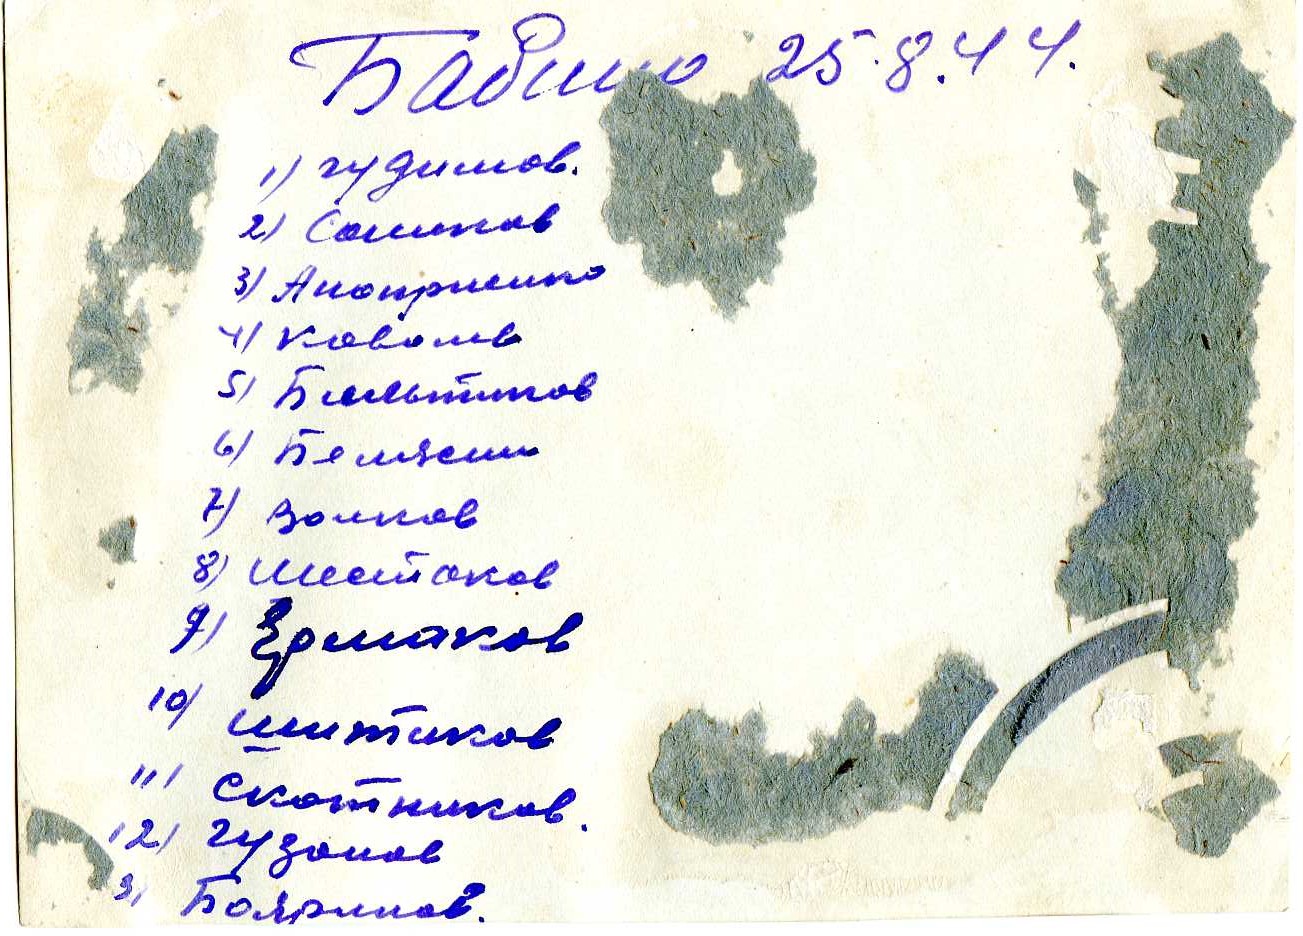 Бабино 25.8.44.
1) Гудимов.
2) Сошников
3) Аноприенко
4) Ковалев
5) Бельтиков
6) Белязин
7) Волков
8) Шестаков
9) Ермаков
10) Шитиков
11) Скотников.
12) Гузанов
3) Бояринов.